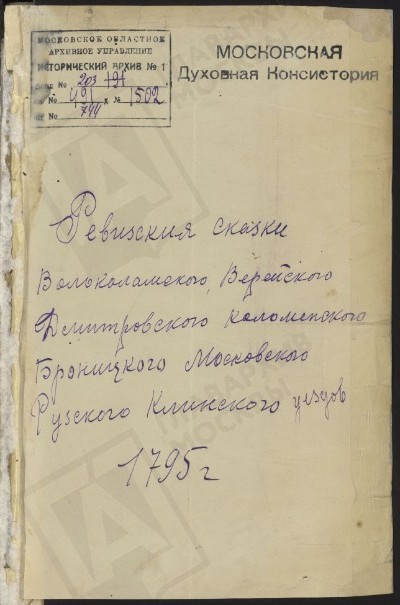 МОСКОВСКОЕ ОБЛАСТНОЕ
АРХИВНОЕ УПРАВЛЕНИЕ
ИСТОРИЧЕСКИЙ АРХИВ № 1
№ 203
№ 1502
№ 744
МОСКОВСКАЯ
Духовная Консистория
Ревизския сказки
Волоколамского, Верейского
Дмитровского Коломенского
Броницкого Московского
Рузского Клинского уездов
1795 г